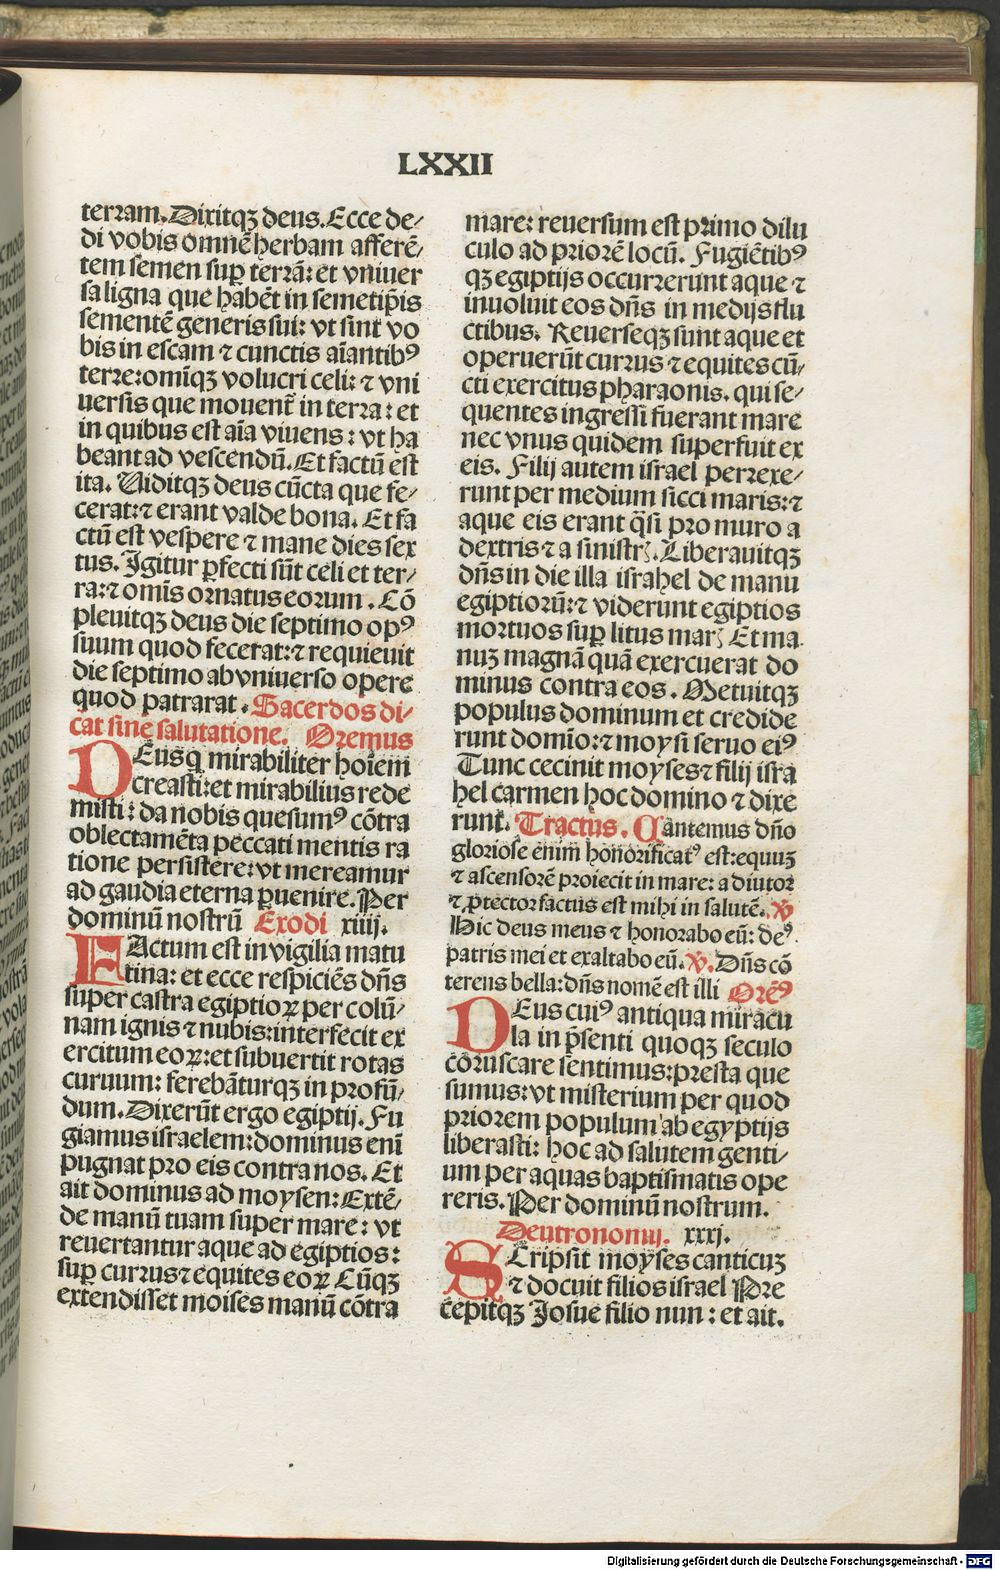 LXXII
terram. Dixitqꝫ deus. Ecce de⸗
di vobis omnē herbam afferē⸗
tem semen suꝑ terrā: et vniuer
sa ligna que habēt in semetip̄is
sementē generis sui: vt sint vo
bis in escam ⁊ cunctis aīantibꝰ
terre: omīqꝫ volucri celi: ⁊ vni
uersis que mouent̄ in terra: et
in quibus est aīa viuens: vt ha
beant ad vescendū. Et factū est
ita. Viditqꝫ deus cūcta que fe⸗
cerat: ⁊ erant valde bona. Et fa
ctū est vespere ⁊ mane dies sex
tus. Igitur ꝑfecti sūt celi et ter⸗
ra: ⁊ omīs ornatus eorum. Cō
pleuitqꝫ deus die septimo opꝰ
suum quod fecerat: ⁊ requieuit
die septimo ab vniuerso opere
quod patrarat. Sacerdos di⸗
cat sine salutatione. Oremus
DEus q̄ mirabiliter hoīem
creasti: et mirabilius rede
misti: da nobis quesumꝰ cōtra
oblectamēta peccati mentis ra
tione persistere: vt mereamur
ad gaudia eterna ꝑuenire. Per
dominū nostrū Exodi xiiij.
FActum est in vigilia matu
tina: et ecce respiciēs dn̄s
super castra egiptioꝝ per colū⸗
nam ignis ⁊ nubis: interfecit ex
ercitum eoꝝ: et subuertit rotas
curuum: ferebāturqꝫ in profū⸗
dum. Dixerūt ergo egiptij. Fu
giamus israelem: dominus enī
pugnat pro eis contra nos. Et
ait dominus ad moysen: Extē⸗
de manū tuam super mare: vt
reuertantur aque ad egiptios:
suꝑ currus ⁊ equites eoꝝ Cūqꝫ
extendisset moises manū cōtra
mare: reuersum est primo dilu
culo ad priorē locū. Fugiētibꝰ
qꝫ egiptijs occurrerunt aque ⁊
inuoluit eos dn̄s in medijs flu
ctibus. Reuerseqꝫ sunt aque et
operuerūt currus ⁊ equites cū⸗
cti exercitus pharaonis. qui se⸗
quentes ingressi fuerant mare
nec vnus quidem superfuit ex
eis. Filij autem israel perrexe⸗
runt per medium sicci maris: ⁊
aque eis erant q̄si pro muro a
dextris ⁊ a sinistrꝭ. Liberauitqꝫ
dn̄s in die illa israhel de manu
egiptiorū: ⁊ viderunt egiptios
mortuos suꝑ litus marꝭ Et ma
nuꝫ magnā quā exercuerat do
minus contra eos. Metuitqꝫ
populus dominum et credide
runt domīo: ⁊ moysi seruo eiꝰ
Tunc cecinit moyses ⁊ filij isra
hel carmen hoc domino ⁊ dixe
runt. Tractus. Cantemus dn̄o
gloriose enim honorificatꝰ est: equuꝫ
⁊ ascensorē proiecit in mare: adiutor
⁊ ꝓtector factus est mihi in salutē. ℣
Hic deus meus ⁊ honorabo eū: deꝰ
patris mei et exaltabo eū. ℣. Dn̄s cō
terens bella: dn̄s nomē est illi Orēꝰ
DEus cuiꝰ antiqua miracu
la in p̄senti quoqꝫ seculo
coruscare sentimus: presta que
sumus: vt misterium per quod
priorem populum ab egyptijs
liberasti: hoc ad salutem genti⸗
um per aquas baptismatis ope
reris. Per dominū nostrum.
Deutronomij. xxxj.
SCripsit moyses canticuꝫ
⁊ docuit filios israel Pre
cepitqꝫ Josue filio nun: et ait.
Digitalisierung gefördert durch die Deutsche Forschungsgemeinschaft - DFG